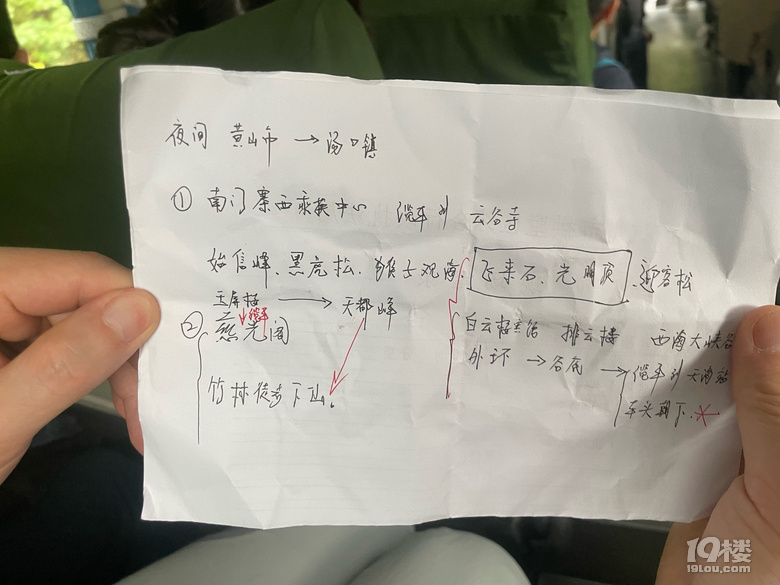 夜间 黄山市 → 汤口镇
① 南门寨西乘换中心 缆车到 云谷寺
始信峰、黑虎松、猴子观海、飞来石、光明顶、迎客松
玉屏楼 → 天都峰
缆车
② 慈光阁
白云宾馆 排云楼 西海大峡谷
外环 → 谷底 → 缆车到天海站
竹林徒步下山。
19楼
19lou.com